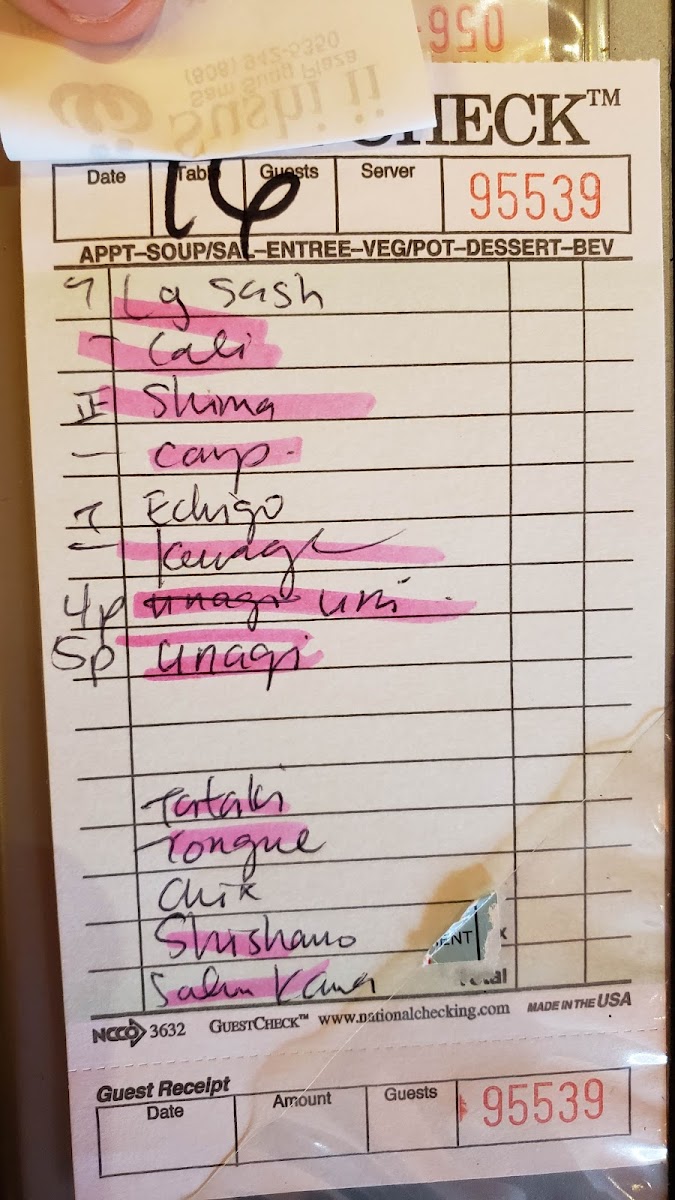 950
(808) 942-5350
Sam Sung Plaza
Sushi ii
CHECK™
Date Table Guests Server
16 95539
APPT–SOUP/SAL–ENTREE–VEG/POT–DESSERT–BEV
Lg Sash
Cali
Shima
Echigo
4p unagi uni
5p unagi
Tataki
Tongue
Chik
Shishamo
Salm Kama
ENT
NCCO 3632 GUESTCHECK™ www.nationalchecking.com MADE IN THE USA
Guest Receipt
Date Amount Guests 95539